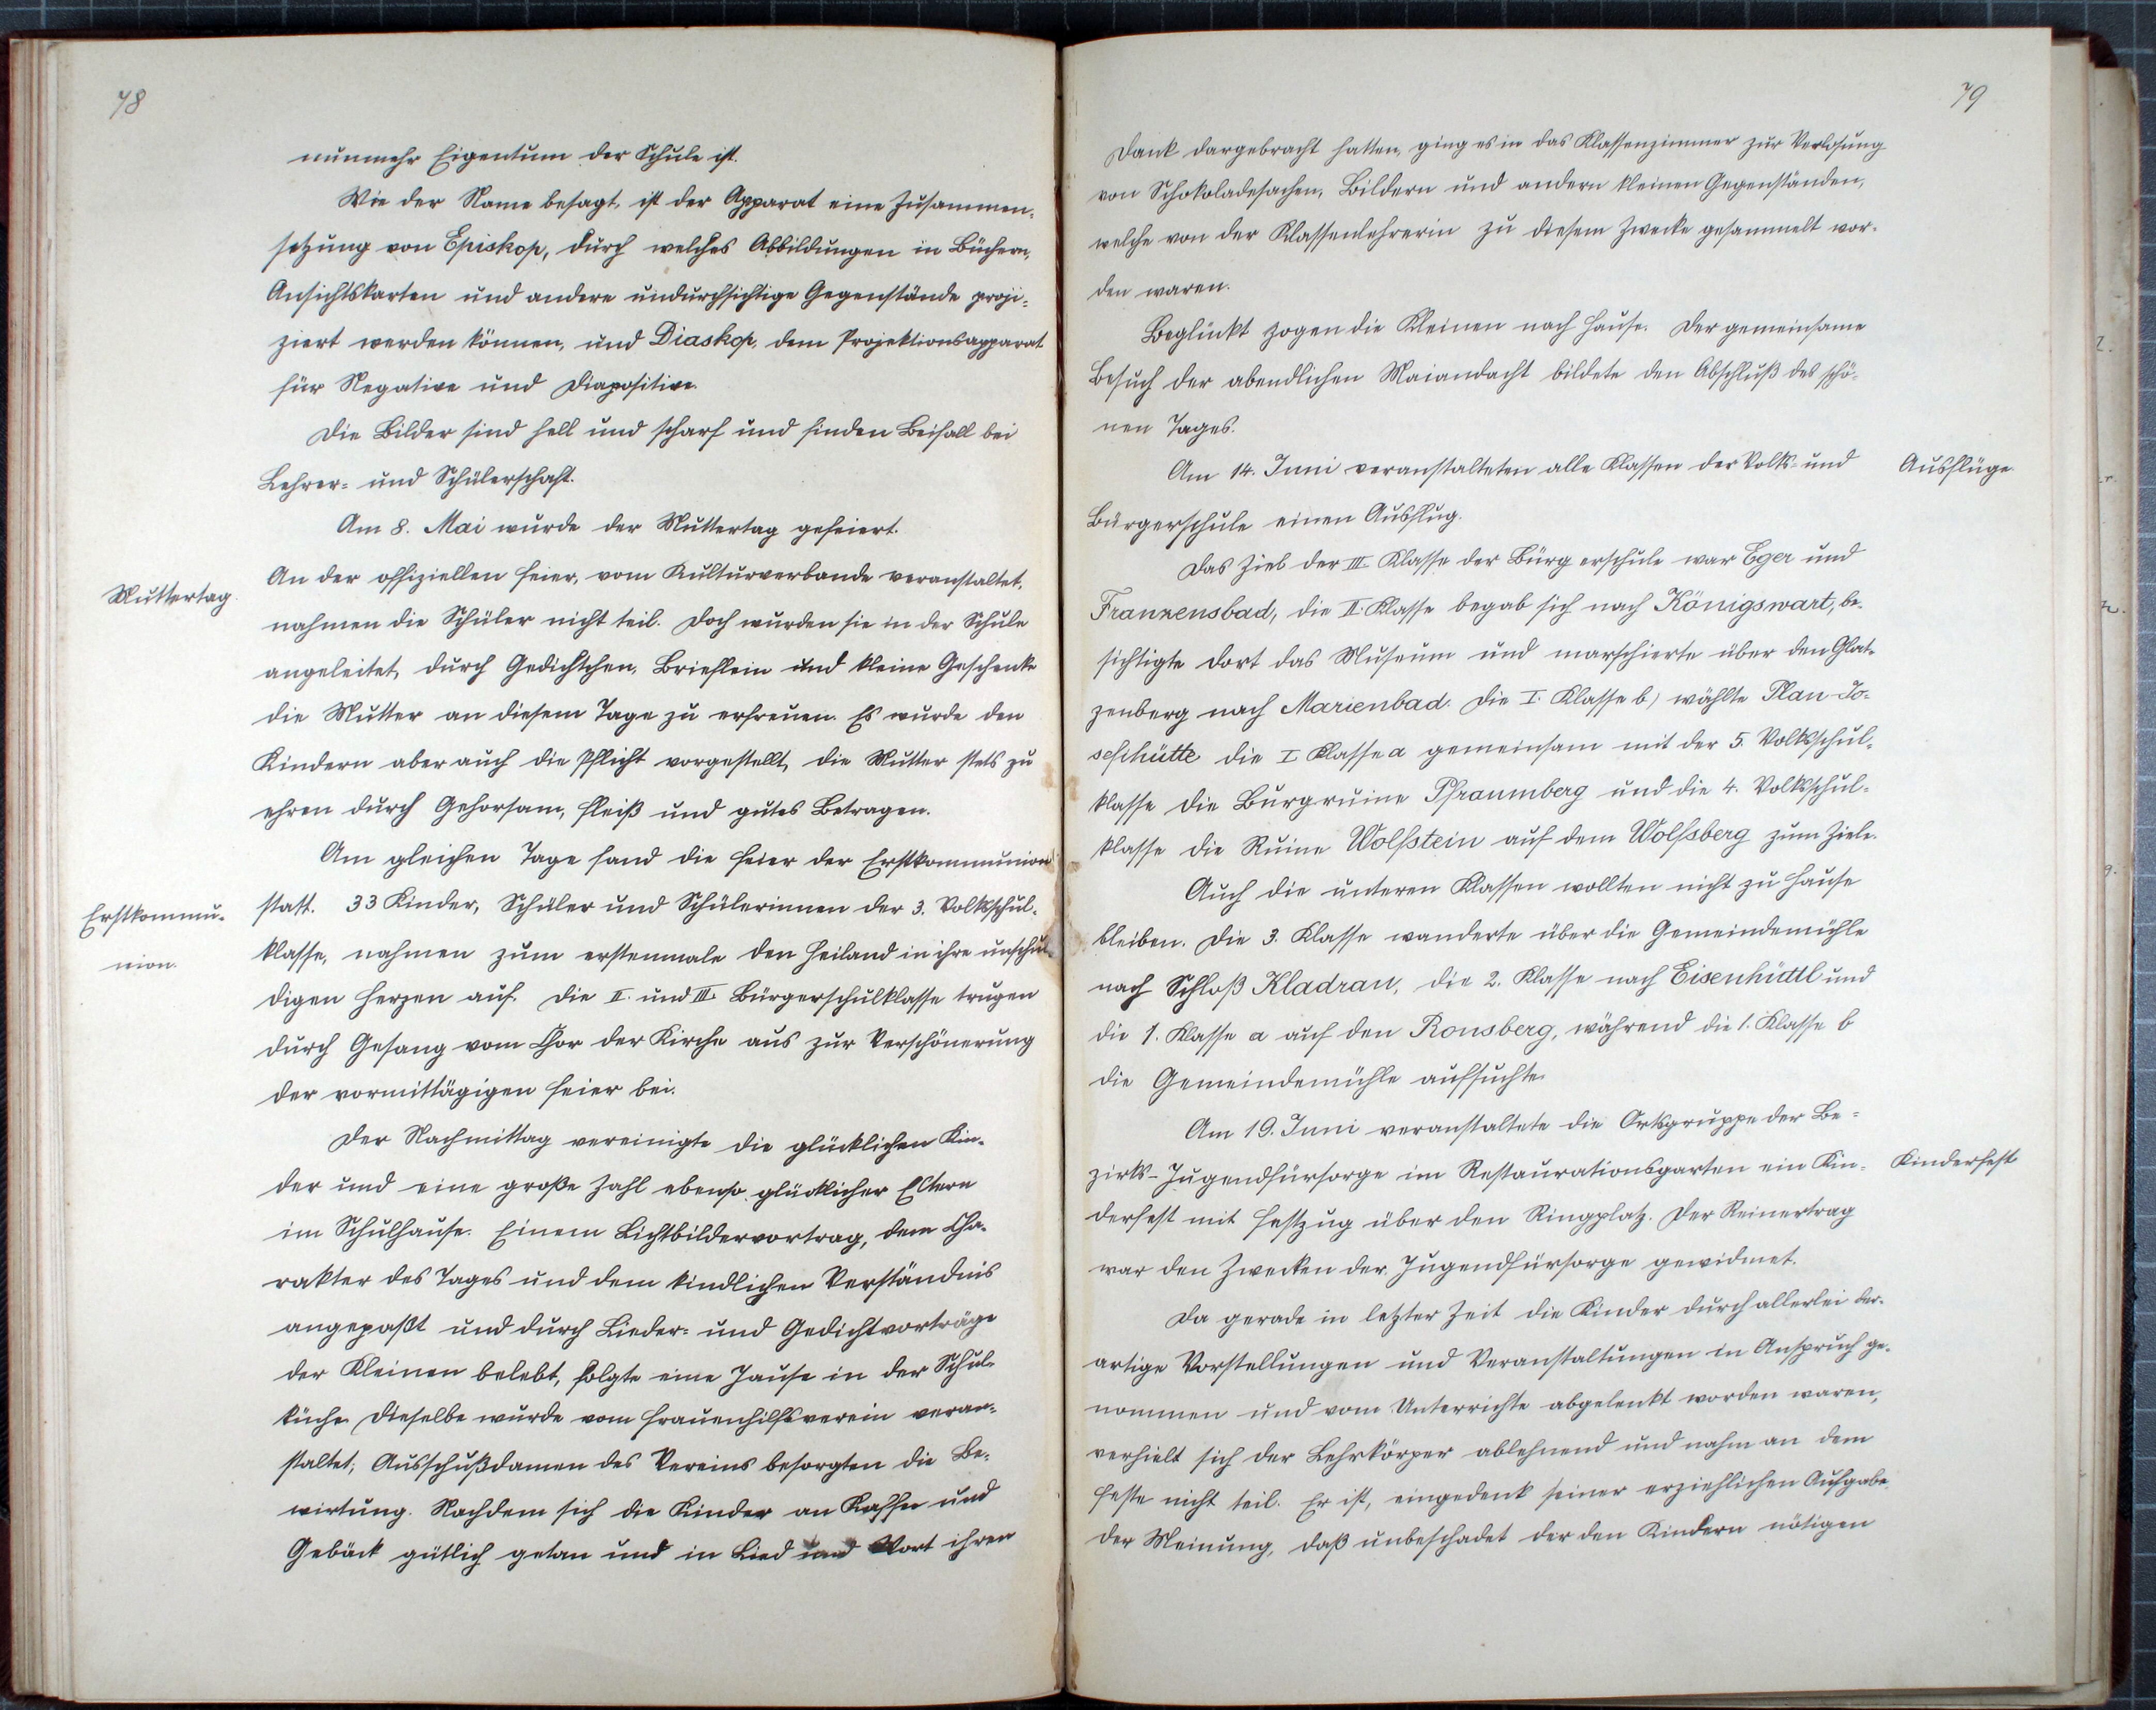 78
nunmehr Eigentum der Schule ist.
Wie der Name besagt, ist der Apparat eine Zusammen-
setzung von Episkop, durch welches Abbildungen in Büchern,
Ansichtskarten und andere undurchsichtige Gegenstände proji-
ziert werden können, und Diaskop, dem Projektionsapparat
für Negative und Diapositive.
Die Bilder sind hell und scharf und finden Beifall bei
Lehrer- und Schülerschaft.
Am 8. Mai wurde der Muttertag gefeiert.
Muttertag.
An der offiziellen Feier, vom Kulturverbande veranstaltet,
nahmen die Schüler nicht teil. Doch wurden sie in der Schule
angeleitet, durch Gedichtchen, Brieflein und kleine Geschenke
die Mutter an diesem Tage zu erfreuen. Es wurde den
Kindern aber auch die Pflicht vorgestellt, die Mutter stets zu
ehren durch Gehorsam, Fleiß und gutes Betragen.
Am gleichen Tage fand die Feier der Erstkommunion
Erstkommu-
nion.
statt. 33 Kinder, Schüler und Schülerinnen der 3. Volksschul-
klasse, nahmen zum erstenmale den Heiland in ihre unschul-
digen Herzen auf. Die II. und III. Bürgerschulklasse trugen
durch Gesang vom Chor der Kirche aus zur Verschönerung
der vormittägigen Feier bei.
Der Nachmittag vereinigte die glücklichen Kin-
der und eine große Zahl ebenso glücklicher Eltern
im Schulhause. Einem Lichtbildervortrag, dem Cha-
rakter des Tages und dem kindlichen Verständnis
angepaßt und durch Lieder- und Gedichtvorträge
der Kleinen belebt, folgte eine Jause in der Schul-
küche. Dieselbe wurde vom Frauenhilfsverein veran-
staltet; Ausschußdamen des Vereins besorgten die Be-
wirtung. Nachdem sich die Kinder an Kaffee und
Gebäck gütlich getan und in Lied und Wort ihren
79
Dank dargebracht hatten, ging es in das Klassenzimmer zur Verlosung
von Schokoladesachen, Bildern und andern kleinen Gegenständen,
welche von der Klassenlehrerin zu diesem Zwecke gesammelt wor-
den waren.
Beglückt zogen die Kleinen nach Hause. Der gemeinsame
Besuch der abendlichen Maiandacht bildete den Abschluß des schö-
nen Tages.
Am 14. Juni veranstalteten alle Klassen der Volks- und
Ausflüge
Bürgerschule einen Ausflug.
Das Ziel der III. Klasse der Bürgerschule war Eger und
Franzensbad, die II. Klasse begab sich nach Königswart, be-
sichtigte dort das Museum und marschierte über den Glat-
zenberg nach Marienbad. Die I. Klasse b) wählte Plan-Jo-
sefihütte die I Klasse a gemeinsam mit der 5. Volksschul-
klasse die Burgruine Pfraumberg und die 4. Volksschul-
klasse die Ruine Wolfstein auf dem Wolfsberg zum Ziele.
Auch die unteren Klassen wollten nicht zu Hause
bleiben. Die 3. Klasse wanderte über die Gemeindemühle
nach Schloß Kladrau, die 2. Klasse nach Eisenhüttl und
die 1. Klasse a auf den Ronsberg, während die 1. Klasse b
die Gemeindemühle aufsuchte.
Am 19. Juni veranstaltete die Ortsgruppe der Be-
zirks-Jugendfürsorge im Restaurationsgarten ein Kin-
Kinderfest
derfest mit Festzug über den Ringplatz. Der Reinertrag
war den Zwecken der Jugendfürsorge gewidmet.
Da gerade in letzter Zeit die Kinder durch allerlei der-
artige Vorstellungen und Veranstaltungen in Anspruch ge-
nommen und vom Unterrichte abgelenkt worden waren,
verhielt sich der Lehrkörper ablehnend und nahm an dem
Feste nicht teil. Er ist, eingedenk seiner erziehlichen Aufgabe,
der Meinung, daß unbeschadet der den Kindern nötigen